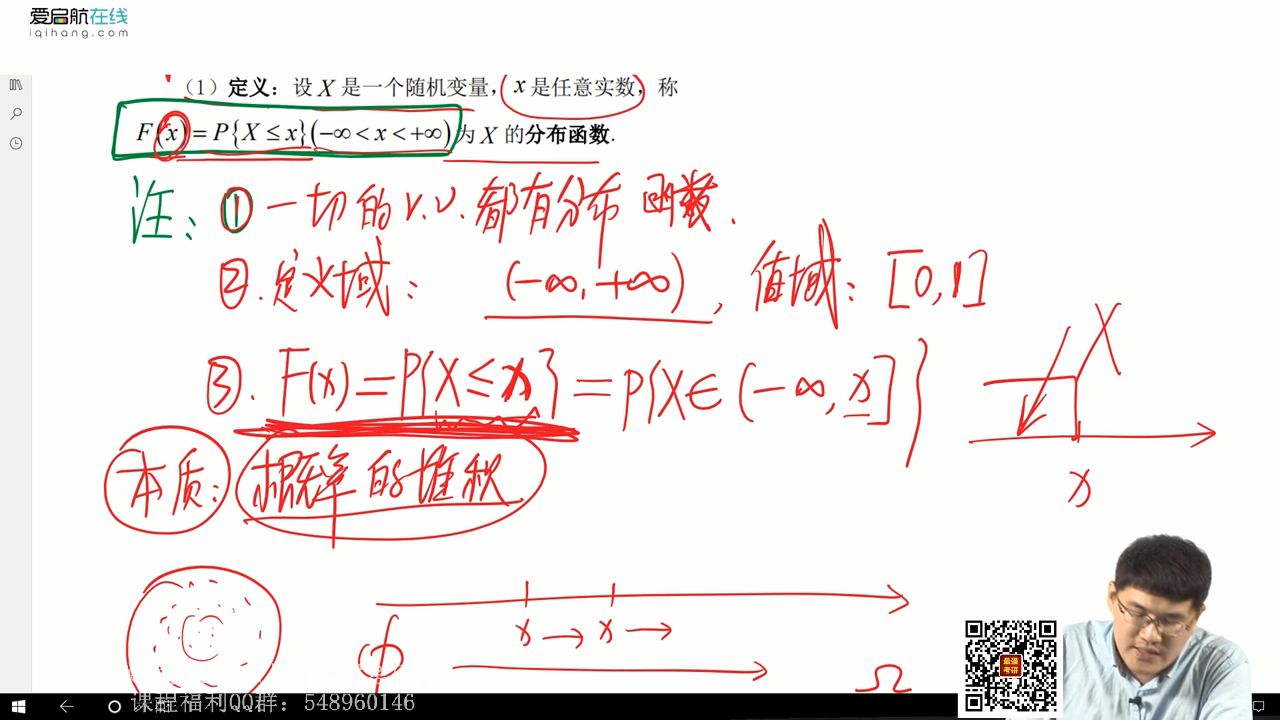 爱启航在线
iqihang.com
（1）定义：设 X 是一个随机变量，x 是任意实数，称
F(x)=P{X≤x}(-∞<x<+∞)为 X 的分布函数.
注：① 一切的 r.v. 都有分布函数.
②.定义域：(-∞,+∞)，值域：[0,1]
③. F(x)=P{X≤x}=P{X∈(-∞,x]}
X
x
本质：概率的堆积
x → x →
∅
Ω
最强考研
课程福利QQ群：548960146